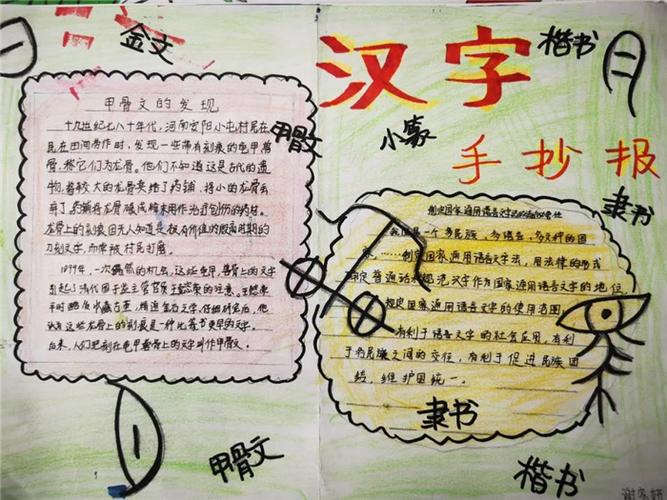 金文
汉字
楷书
小篆
手抄报
隶书
甲骨文
甲骨文的发现
十九世纪七八十年代，河南安阳小屯村民在
在田间劳作时，发现一些带有刻痕的龟甲兽
骨，称它们为龙骨。他们不知道这是古代的遗
物，着较大的龙骨卖给了药铺，将小的龙骨
龙骨上的刻痕但无人知道是极有价值的殷商时期的
刀刻文字，而常被村民刮磨。
1899年，一次偶然的机会，这些龟甲、兽骨上的文字
引起了清代国子监主管官员王懿荣的注意。王懿荣
认为这些龙骨上的刻痕是一种比篆书更早的文字。
后来，人们把刻在龟甲兽骨上的文字叫作甲骨文。
制定国家通用语言文字法的
我国是一个多民族，多语言，多文种的国
家，……制定国家通用语言文字法，用法律的形式
确定普通话和规范汉字作为国家通用语言文字的地位，
规定国家通用语言文字的使用范围
有利于语言文字的社会应用，有利
于各民族之间的交往，有利于促进民族团
结，维护国家统一。
隶书
甲骨文
楷书